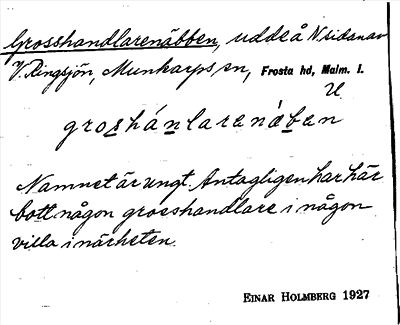 Grosshandlarenäbben, udde å N sidan av
V. Ringsjön, Munkarps sn, Frosta hd, Malm. l.
U
groshánlarenàben
Namnet är ungt. Antagligen har här
bott någon grosshandlare i någon
villa i närheten.
EINAR HOLMBERG 1927